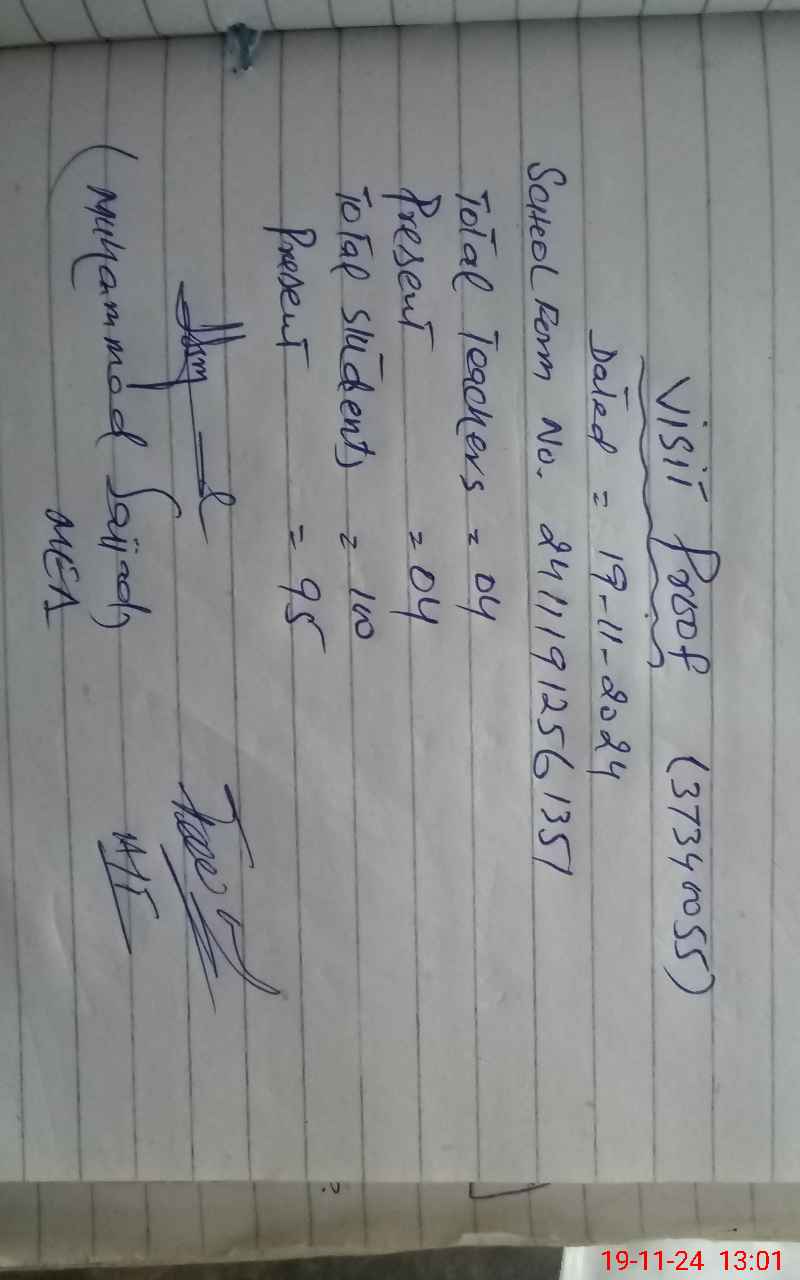 Visit Proof (37340055)
Dated = 19-11-2024
School Form No. 24111912561351
Total Teachers = 04
Present = 04
Total Students = 100
Present = 95
(Muhammad Sajjad)
MEA
19-11-24 13:01